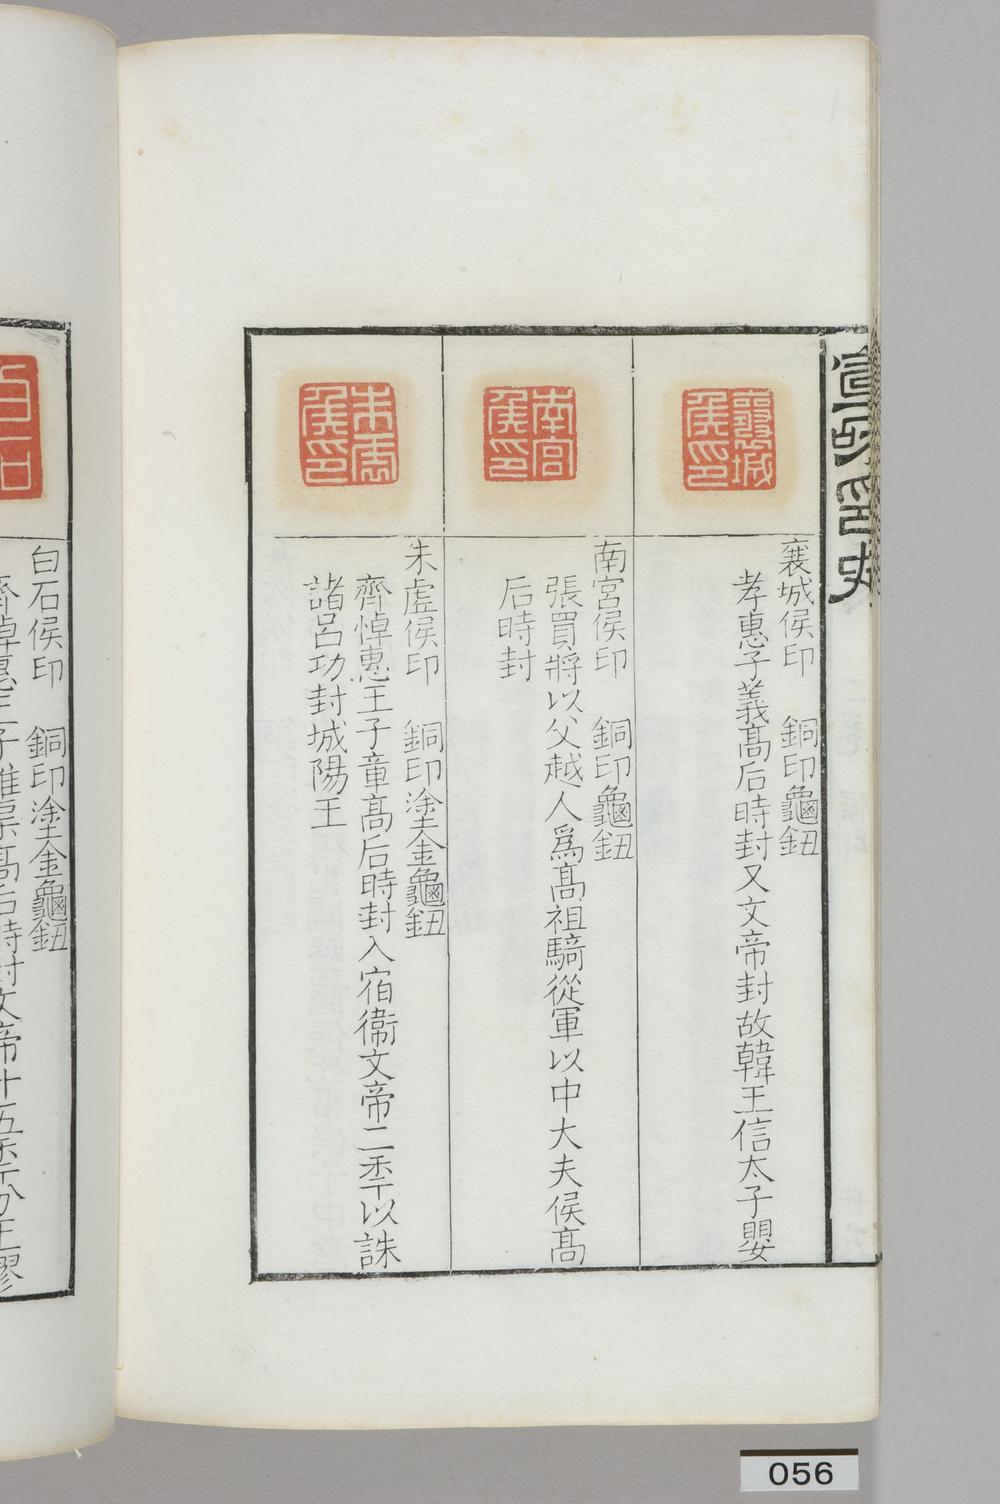 宣和印史
襄城
侯印
襄城侯印　銅印龜鈕
孝惠子義高后時封又文帝封故韓王信太子嬰
南宮
侯印
南宮侯印　銅印龜鈕
張買將以父越人爲高祖騎從軍以中大夫侯高
后時封
朱虛
侯印
朱虛侯印　銅印塗金龜鈕
齊悼惠王子章高后時封入宿衛文帝二秊以誅
諸呂功封城陽王
白石
白石侯印　銅印塗金龜鈕
齊悼惠王子雄渠高后時封文帝十五秊以王膠
056